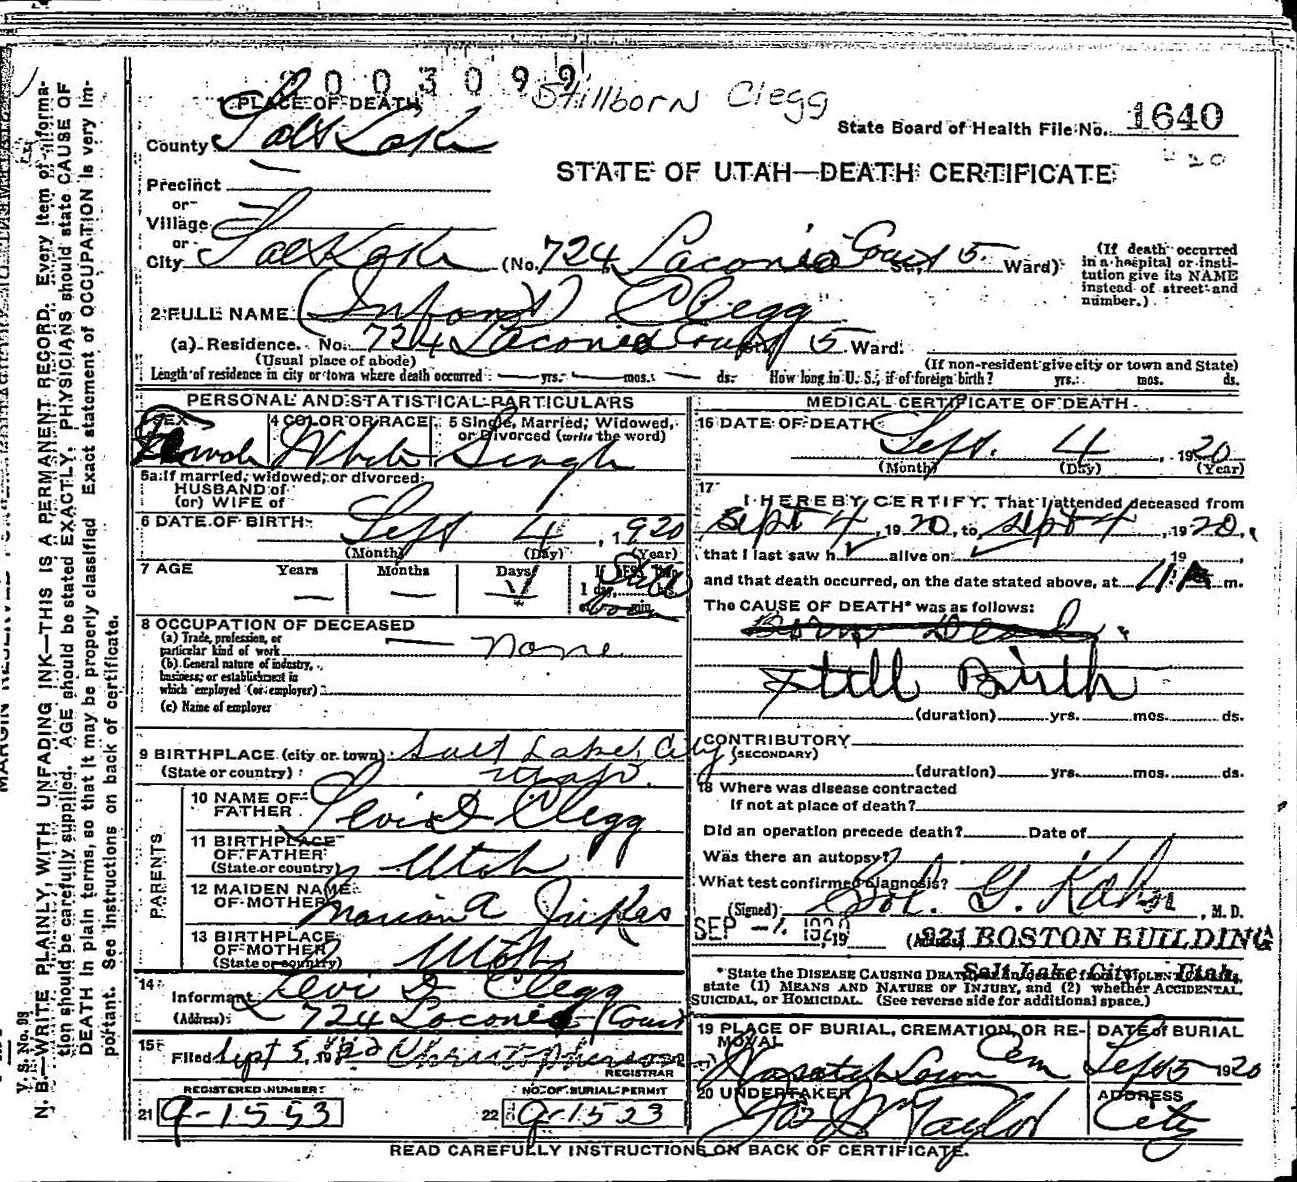 2003099
Stillborn Clegg
1 PLACE OF DEATH
State Board of Health File No. 1640
County Salt Lake
20
STATE OF UTAH—DEATH CERTIFICATE
Precinct
or
Village
or
City Salt Lake (No. 724 Laconia Court St., 5. Ward)
(If death occurred in a hospital or institution give its NAME instead of street and number.)
2 FULL NAME (Infant) Clegg
(a) Residence. No. 724 Laconia Court St. 5 Ward.
(Usual place of abode) (If non-resident give city or town and State)
Length of residence in city or town where death occurred yrs. mos. ds. How long in U. S., if of foreign birth? yrs. mos. ds.
PERSONAL AND STATISTICAL PARTICULARS
SEX
Female
4 COLOR OR RACE
White
5 Single, Married, Widowed, or Divorced (write the word)
Single
5a If married, widowed, or divorced
HUSBAND of
(or) WIFE of
6 DATE OF BIRTH Sept 4, 1920
(Month) (Day) (Year)
7 AGE Years Months Days
1 day, hrs.
or min.
Still born
8 OCCUPATION OF DECEASED
(a) Trade, profession, or
particular kind of work none
(b) General nature of industry,
business, or establishment in
which employed (or employer)
(c) Name of employer
9 BIRTHPLACE (city or town) Salt Lake City
(State or country) Utah.
PARENTS
10 NAME OF FATHER Levi D Clegg
11 BIRTHPLACE OF FATHER (State or country) Utah
12 MAIDEN NAME OF MOTHER Marion A Jukes
13 BIRTHPLACE OF MOTHER (State or country) Utah
14 Informant Levi D Clegg
(Address) 724 Laconia Court
15 Filed Sept 5, 1920 Christopherson
REGISTRAR
REGISTERED NUMBER NO. OF BURIAL PERMIT
21 9-1553 22 9-1523
MEDICAL CERTIFICATE OF DEATH
16 DATE OF DEATH
Sept. 4, 1920
(Month) (Day) (Year)
17 I HEREBY CERTIFY, That I attended deceased from
Sept 4, 1920, to Sept 4, 1920,
that I last saw h alive on 19
and that death occurred, on the date stated above, at 11 A m.
The CAUSE OF DEATH* was as follows:
Born Dead.
Still Birth
(duration) yrs. mos. ds.
CONTRIBUTORY
(SECONDARY)
(duration) yrs. mos. ds.
18 Where was disease contracted
if not at place of death?
Did an operation precede death? Date of
Was there an autopsy?
What test confirmed diagnosis?
(Signed) Sol. G. Kahn, M. D.
SEP -4 1920, 19 (Address) 921 BOSTON BUILDING
Salt Lake City, Utah,
*State the DISEASE CAUSING DEATH, or in deaths from VIOLENT CAUSES,
state (1) MEANS AND NATURE OF INJURY, and (2) whether ACCIDENTAL,
SUICIDAL, or HOMICIDAL. (See reverse side for additional space.)
19 PLACE OF BURIAL, CREMATION, OR REMOVAL
Wasatch Lawn Cem
DATE of BURIAL
Sept 5 1920
20 UNDERTAKER
Jos Wm Taylor
ADDRESS
City
READ CAREFULLY INSTRUCTIONS ON BACK OF CERTIFICATE.
V. S. No. 98
N. B.—WRITE PLAINLY, WITH UNFADING INK—THIS IS A PERMANENT RECORD. Every item of informa-
tion should be carefully supplied. AGE should be stated EXACTLY. PHYSICIANS should state CAUSE OF
DEATH in plain terms, so that it may be properly classified. Exact statement of OCCUPATION is very im-
portant. See instructions on back of certificate.